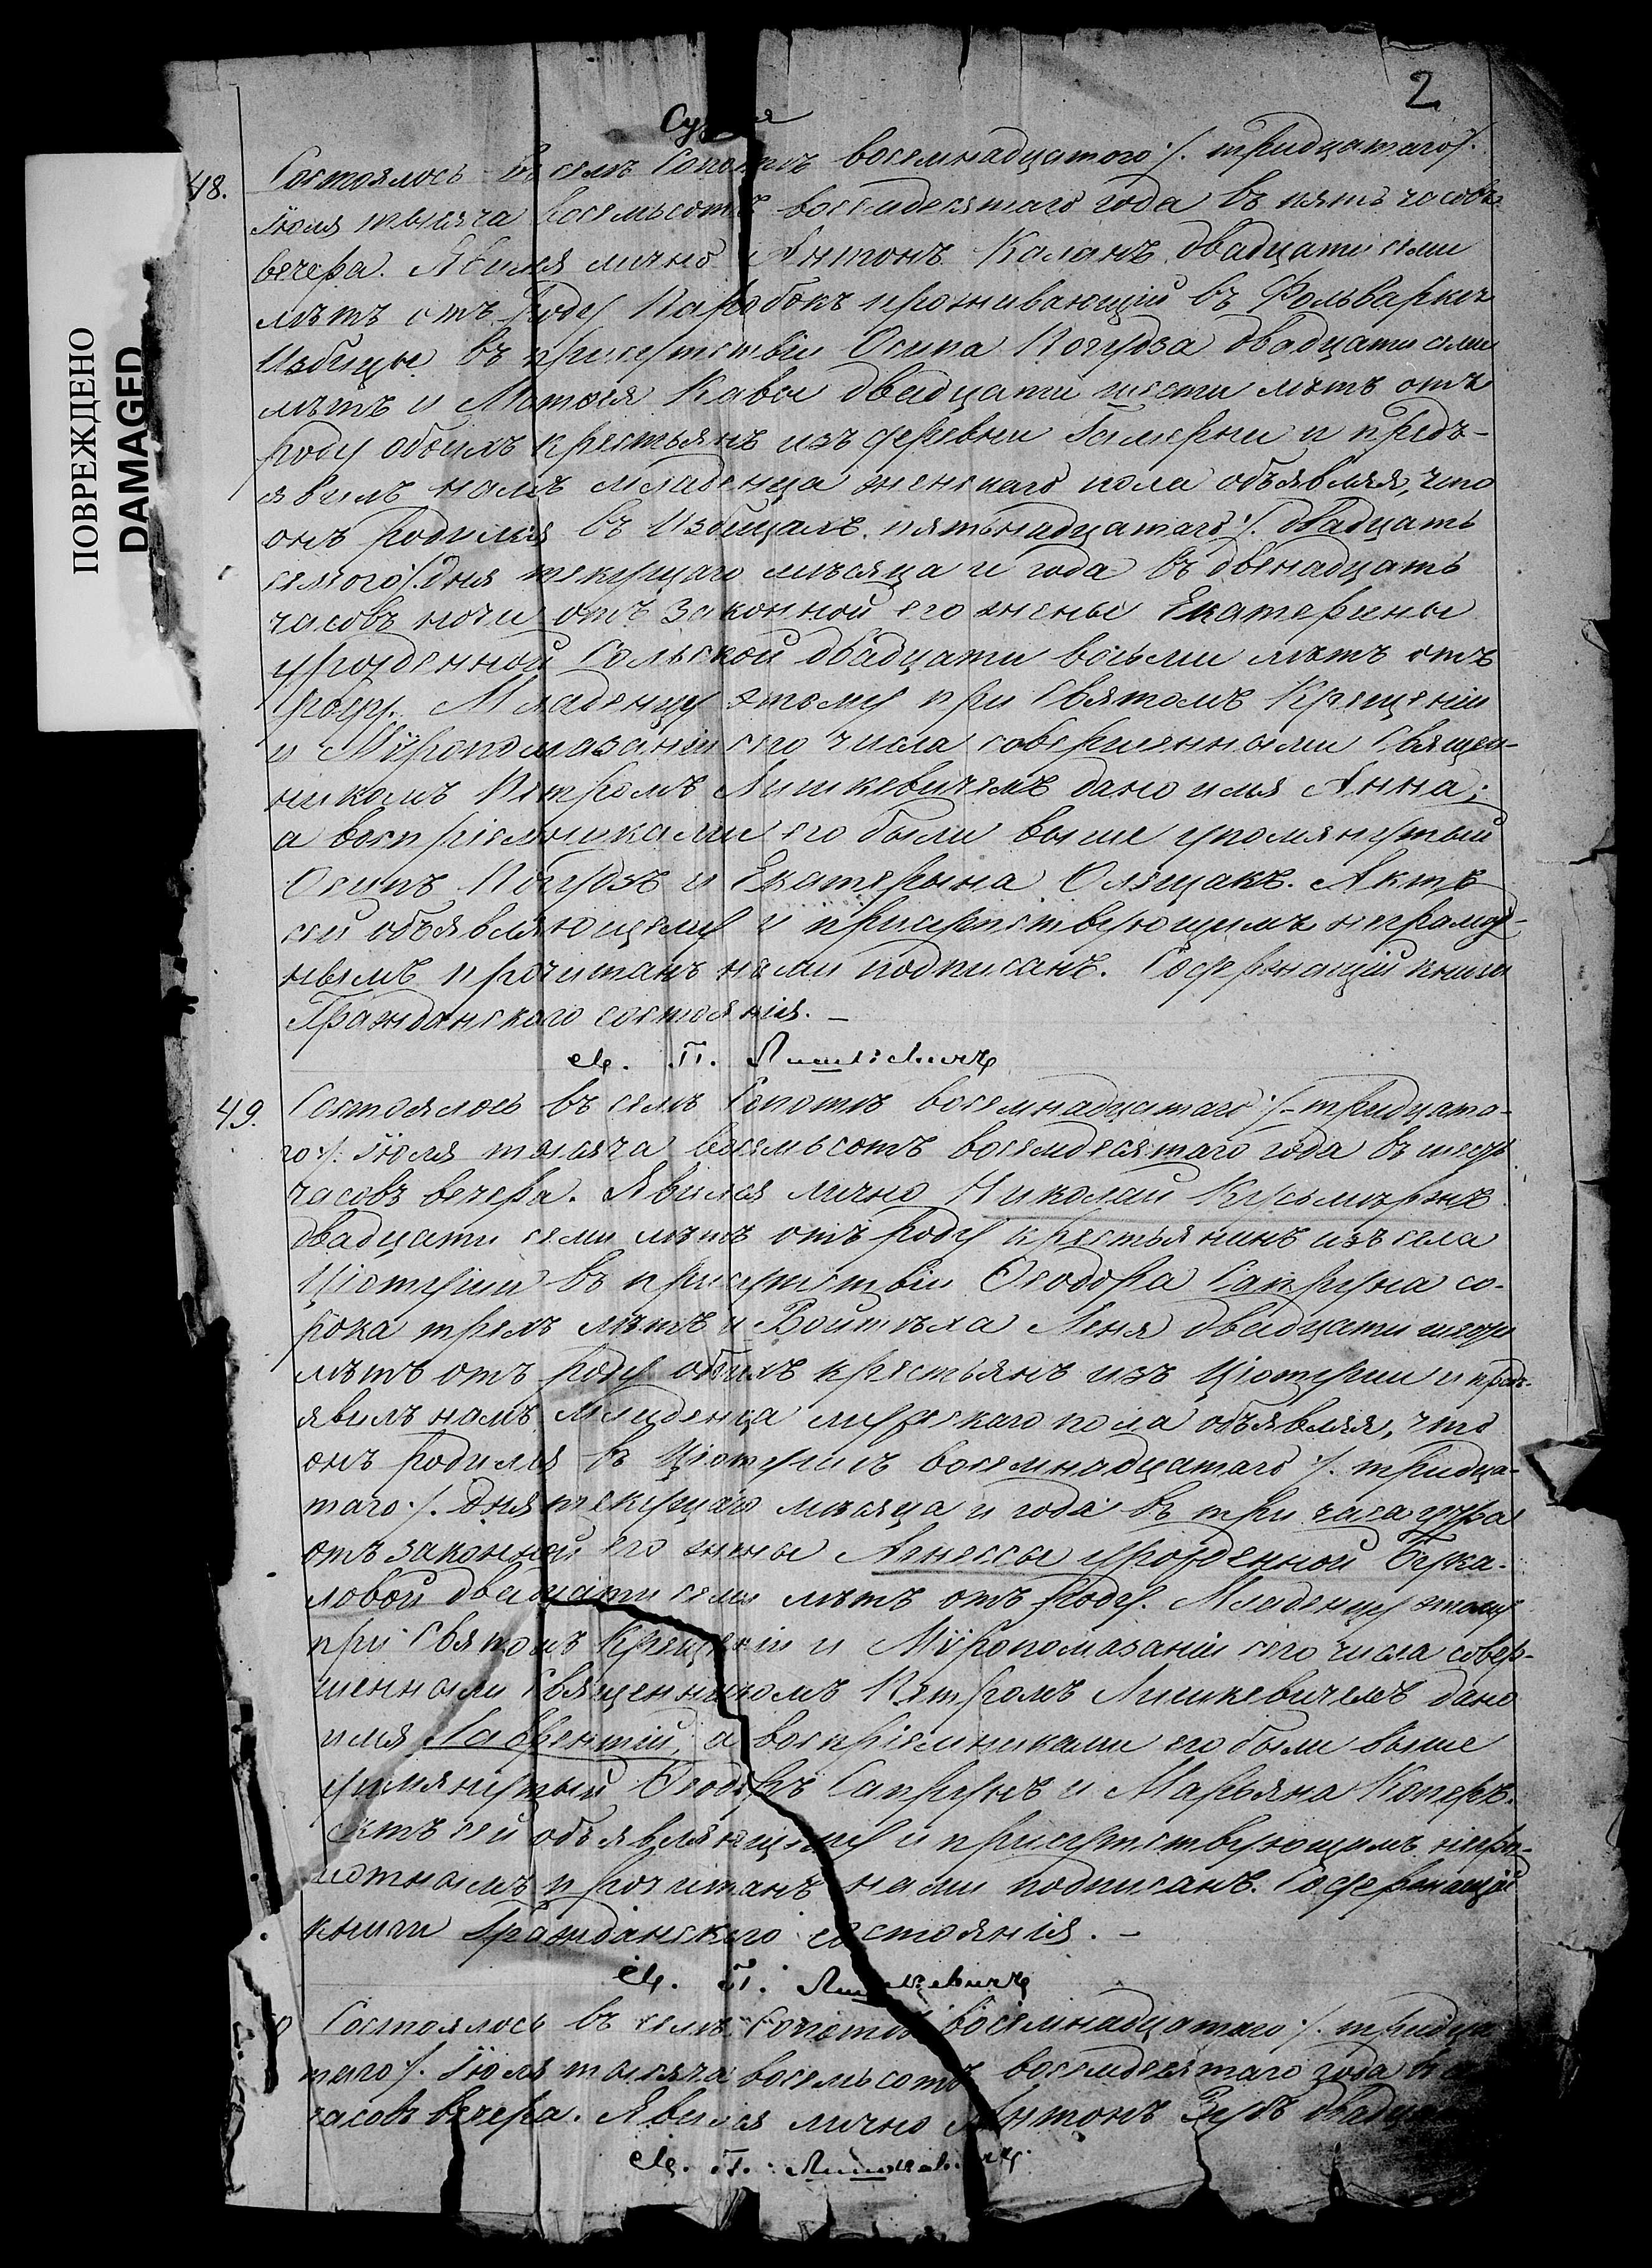 2
ПОВРЕЖДЕНО
DAMAGED
48. Состоялось въ селѣ Сопотѣ восемнадцатаго /. тридцатаго /.
Іюля тысяча восемьсотъ восемдесятаго года въ пять часовъ
вечера. Явился лично Антонъ Каланъ двадцати семи
лѣтъ отъ роду Паробокъ проживающій въ Фольваркѣ
Избицы въ присутствіи Осипа Погудза двадцати семи
лѣтъ и Матѳея Кавы двадцати шести лѣтъ отъ
роду обоихъ крестьянъ изъ деревни Гамерни и предъ-
явилъ намъ младенца женскаго пола объявляя, что
онъ родился въ Избицахъ пятьнадцатаго /. двадцать
семого /. дня текущаго мѣсяца и года въ двенадцать
часовъ ночи отъ законной его жены Екатерины
урожденной Сольской двадцати восьми лѣтъ отъ
роду. Младенцу этому при Святомъ Крещеніи
и Мѵропомазаніи сего числа совершенными Священ-
никомъ Петромъ Лишкевичемъ дано имя Анна;
а воспріемниками его были выше упомянутый
Осипъ Погудзъ и Екатерына Олещакъ. Актъ
сей объявляющему и присутствующимъ неграмот-
нымъ прочитанъ нами подписанъ. Содержащій книги
Гражданского состоянія. —
С. П. Лишкевичъ
49. Состоялось въ селѣ Сопотѣ восемнадцатаго /. тридцата-
го /. Іюля тысяча восемьсотъ восемдесятаго года въ шесть
часовъ вечера. Явился лично Николай Кусьмержъ
двадцати семи лѣтъ отъ роду крестьянинъ изъ села
Ціотуши въ присутствіи Ѳеодора Сапруна со-
рока трехъ лѣтъ и Войтѣха Леня двадцати шести
лѣтъ отъ роду обоихъ крестьянъ изъ Ціотуши и предъ-
явилъ намъ младенца мужескаго пола объявляя, что
онъ родился въ Ціотушѣ восемнадцатаго /. тридца-
таго /. дня текущаго мѣсяца и года въ три часа утра
отъ законной его жены Агнессы урожденной Бука-
ловой двадцати семи лѣтъ отъ роду. Младенцу этому
при Святомъ Крещеніи и Мѵропомазаніи сего числа совер-
шенными Священникомъ Петромъ Лишкевичемъ дано
имя Лаврентій, а воспріемниками его были выше
упомянутый Ѳеодоръ Сапрунъ и Марьяна Коперъ.
Актъ сей объявляющему и присутствующимъ негра-
мотнымъ прочитанъ нами подписанъ. Содержащій
книги Гражданского состоянія. —
С. П. Лишкевичъ
Состоялось въ селѣ Сопотѣ восемнадцатаго /. тридца
таго /. Іюля тысяча восемьсотъ восемдесятаго года въ
часовъ вечера. Явился лично Антонъ Зубъ
С. П. Лишкевичъ